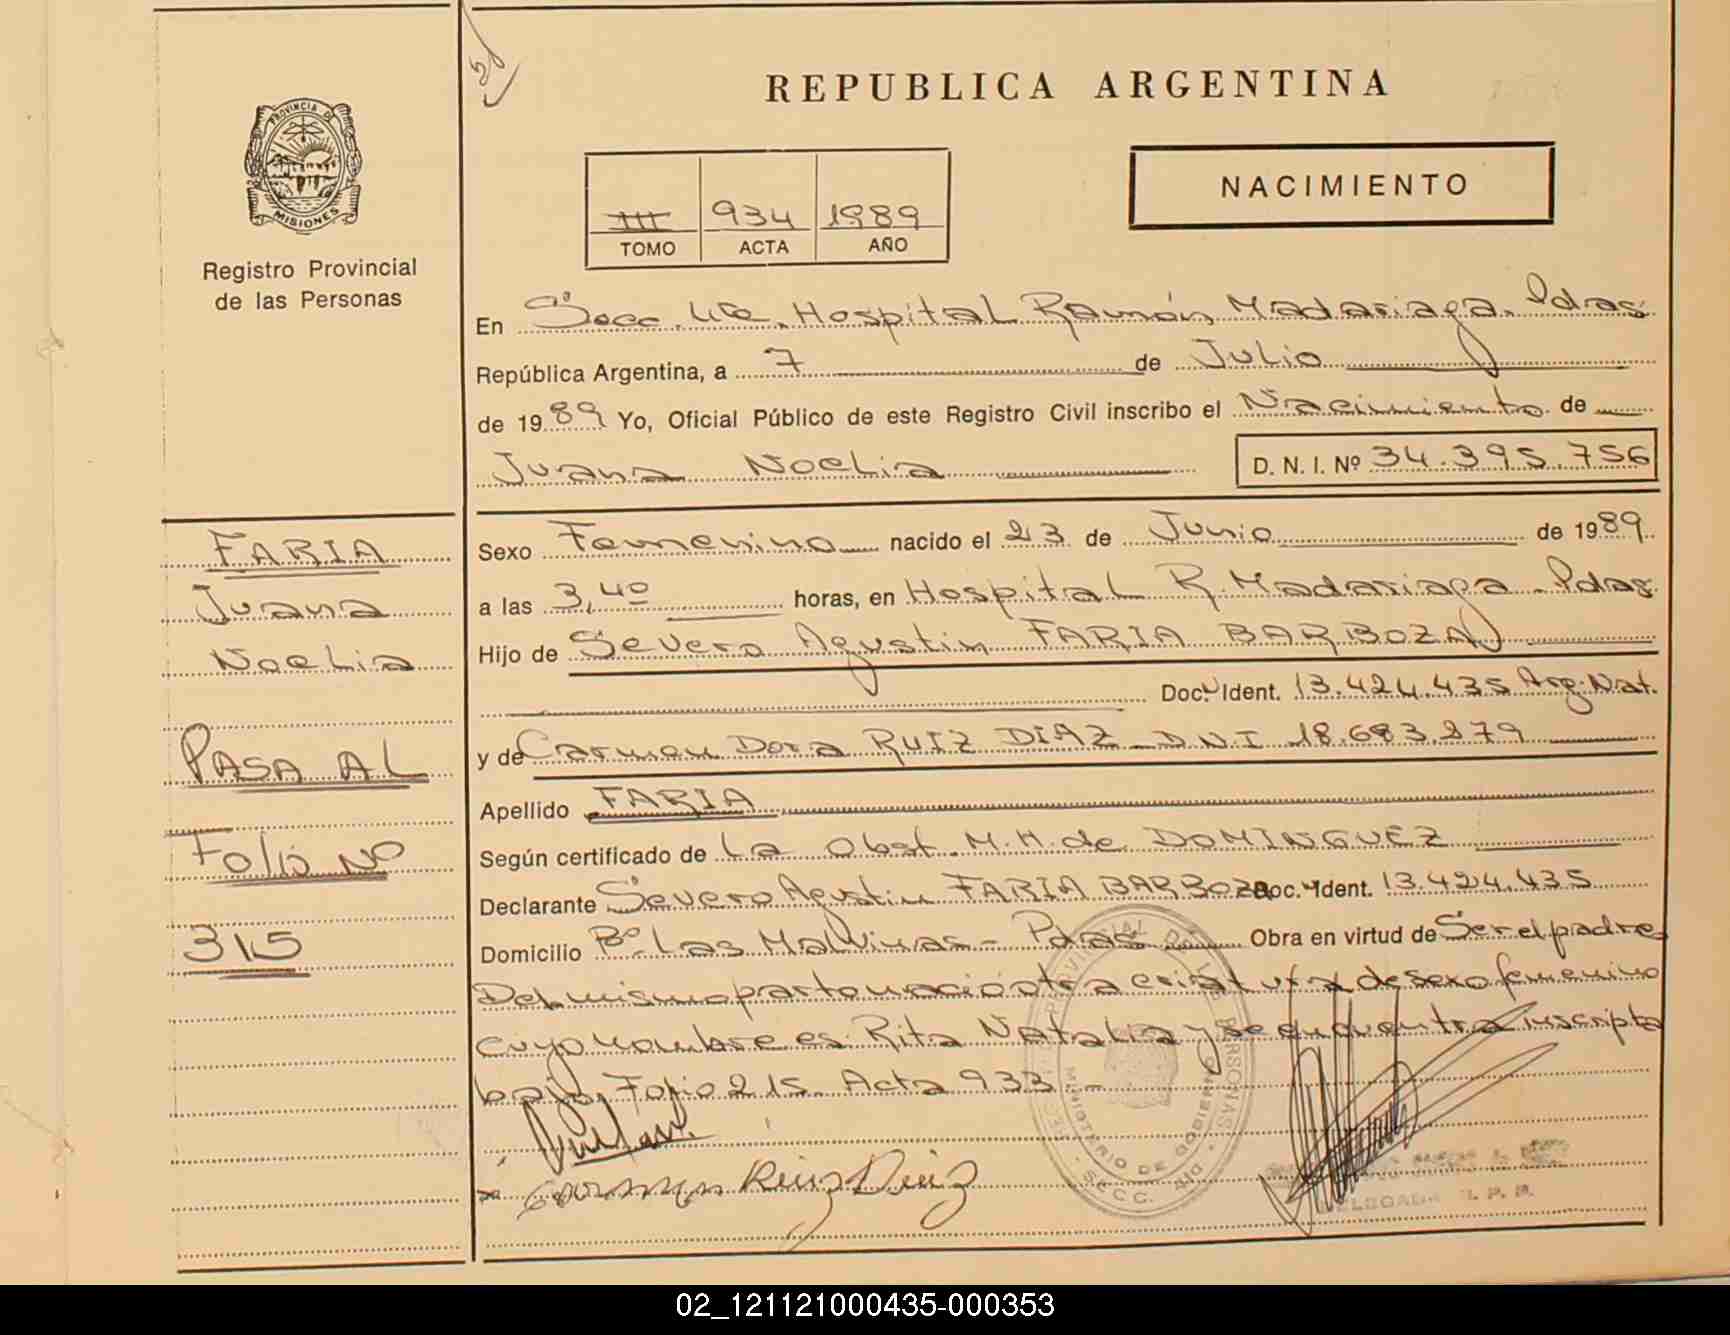 REPUBLICA ARGENTINA
NACIMIENTO
PROVINCIA DE
MISIONES
Registro Provincial
de las Personas
III 934 1989
TOMO ACTA AÑO
En Secc. 4ta. Hospital Ramón Madariaga. Pdas.
República Argentina, a 7 de Julio
de 1989 Yo, Oficial Público de este Registro Civil inscribo el Nacimiento de
Juana Noelia D. N. I. Nº 34.395.756
Sexo Femenino nacido el 23 de Junio de 1989
a las 3,40 horas, en Hospital R. Madariaga - Pdas.
Hijo de Severo Agustin FARIA BARBOZA
Doc. Ident. 13.424.435 Arg. Nat.
y de Carmen Dora RUIZ DIAZ - DNI 18.683.279
Apellido FARIA
Según certificado de La Obst. M. H. de DOMINGUEZ
Declarante Severo Agustin FARIA BARBOZA Doc. Ident. 13.424.435
Domicilio Bº Las Malvinas - Pdas Obra en virtud de Ser el padre
Del mismo parto nació otra criatura de sexo femenino
cuyo nombre es Rita Natalia y se encuentra inscripta
bajo Folio 215. Acta 933 -
Carmen Ruiz Diaz
MINISTERIO DE GOBIERNO
DELEGADA R. P. P.
FARIA
Juana
Noelia
PASA AL
Folio Nº
315
02_121121000435-000353